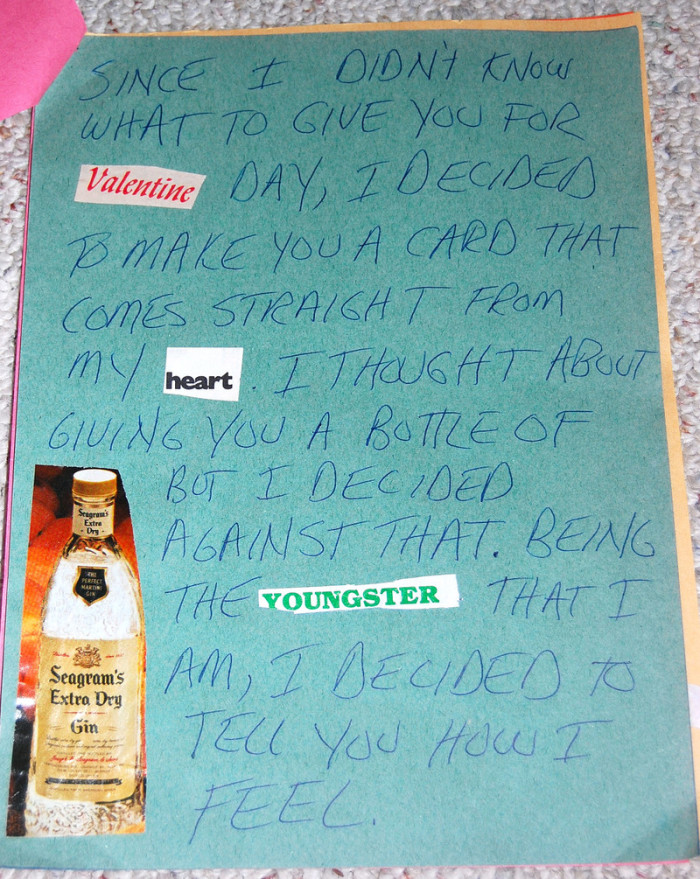 SINCE I DIDN'T KNOW
WHAT TO GIVE YOU FOR
Valentine DAY, I DECIDED
TO MAKE YOU A CARD THAT
COMES STRAIGHT FROM
MY heart. I THOUGHT ABOUT
GIVING YOU A BOTTLE OF
BUT I DECIDED
AGAINST THAT. BEING
THE YOUNGSTER THAT I
AM, I DECIDED TO
TELL YOU HOW I
FEEL.
Seagram's
Extra
Dry
THE
PERFECT
MARTINI
GIN
Seagram's
Extra Dry
Gin